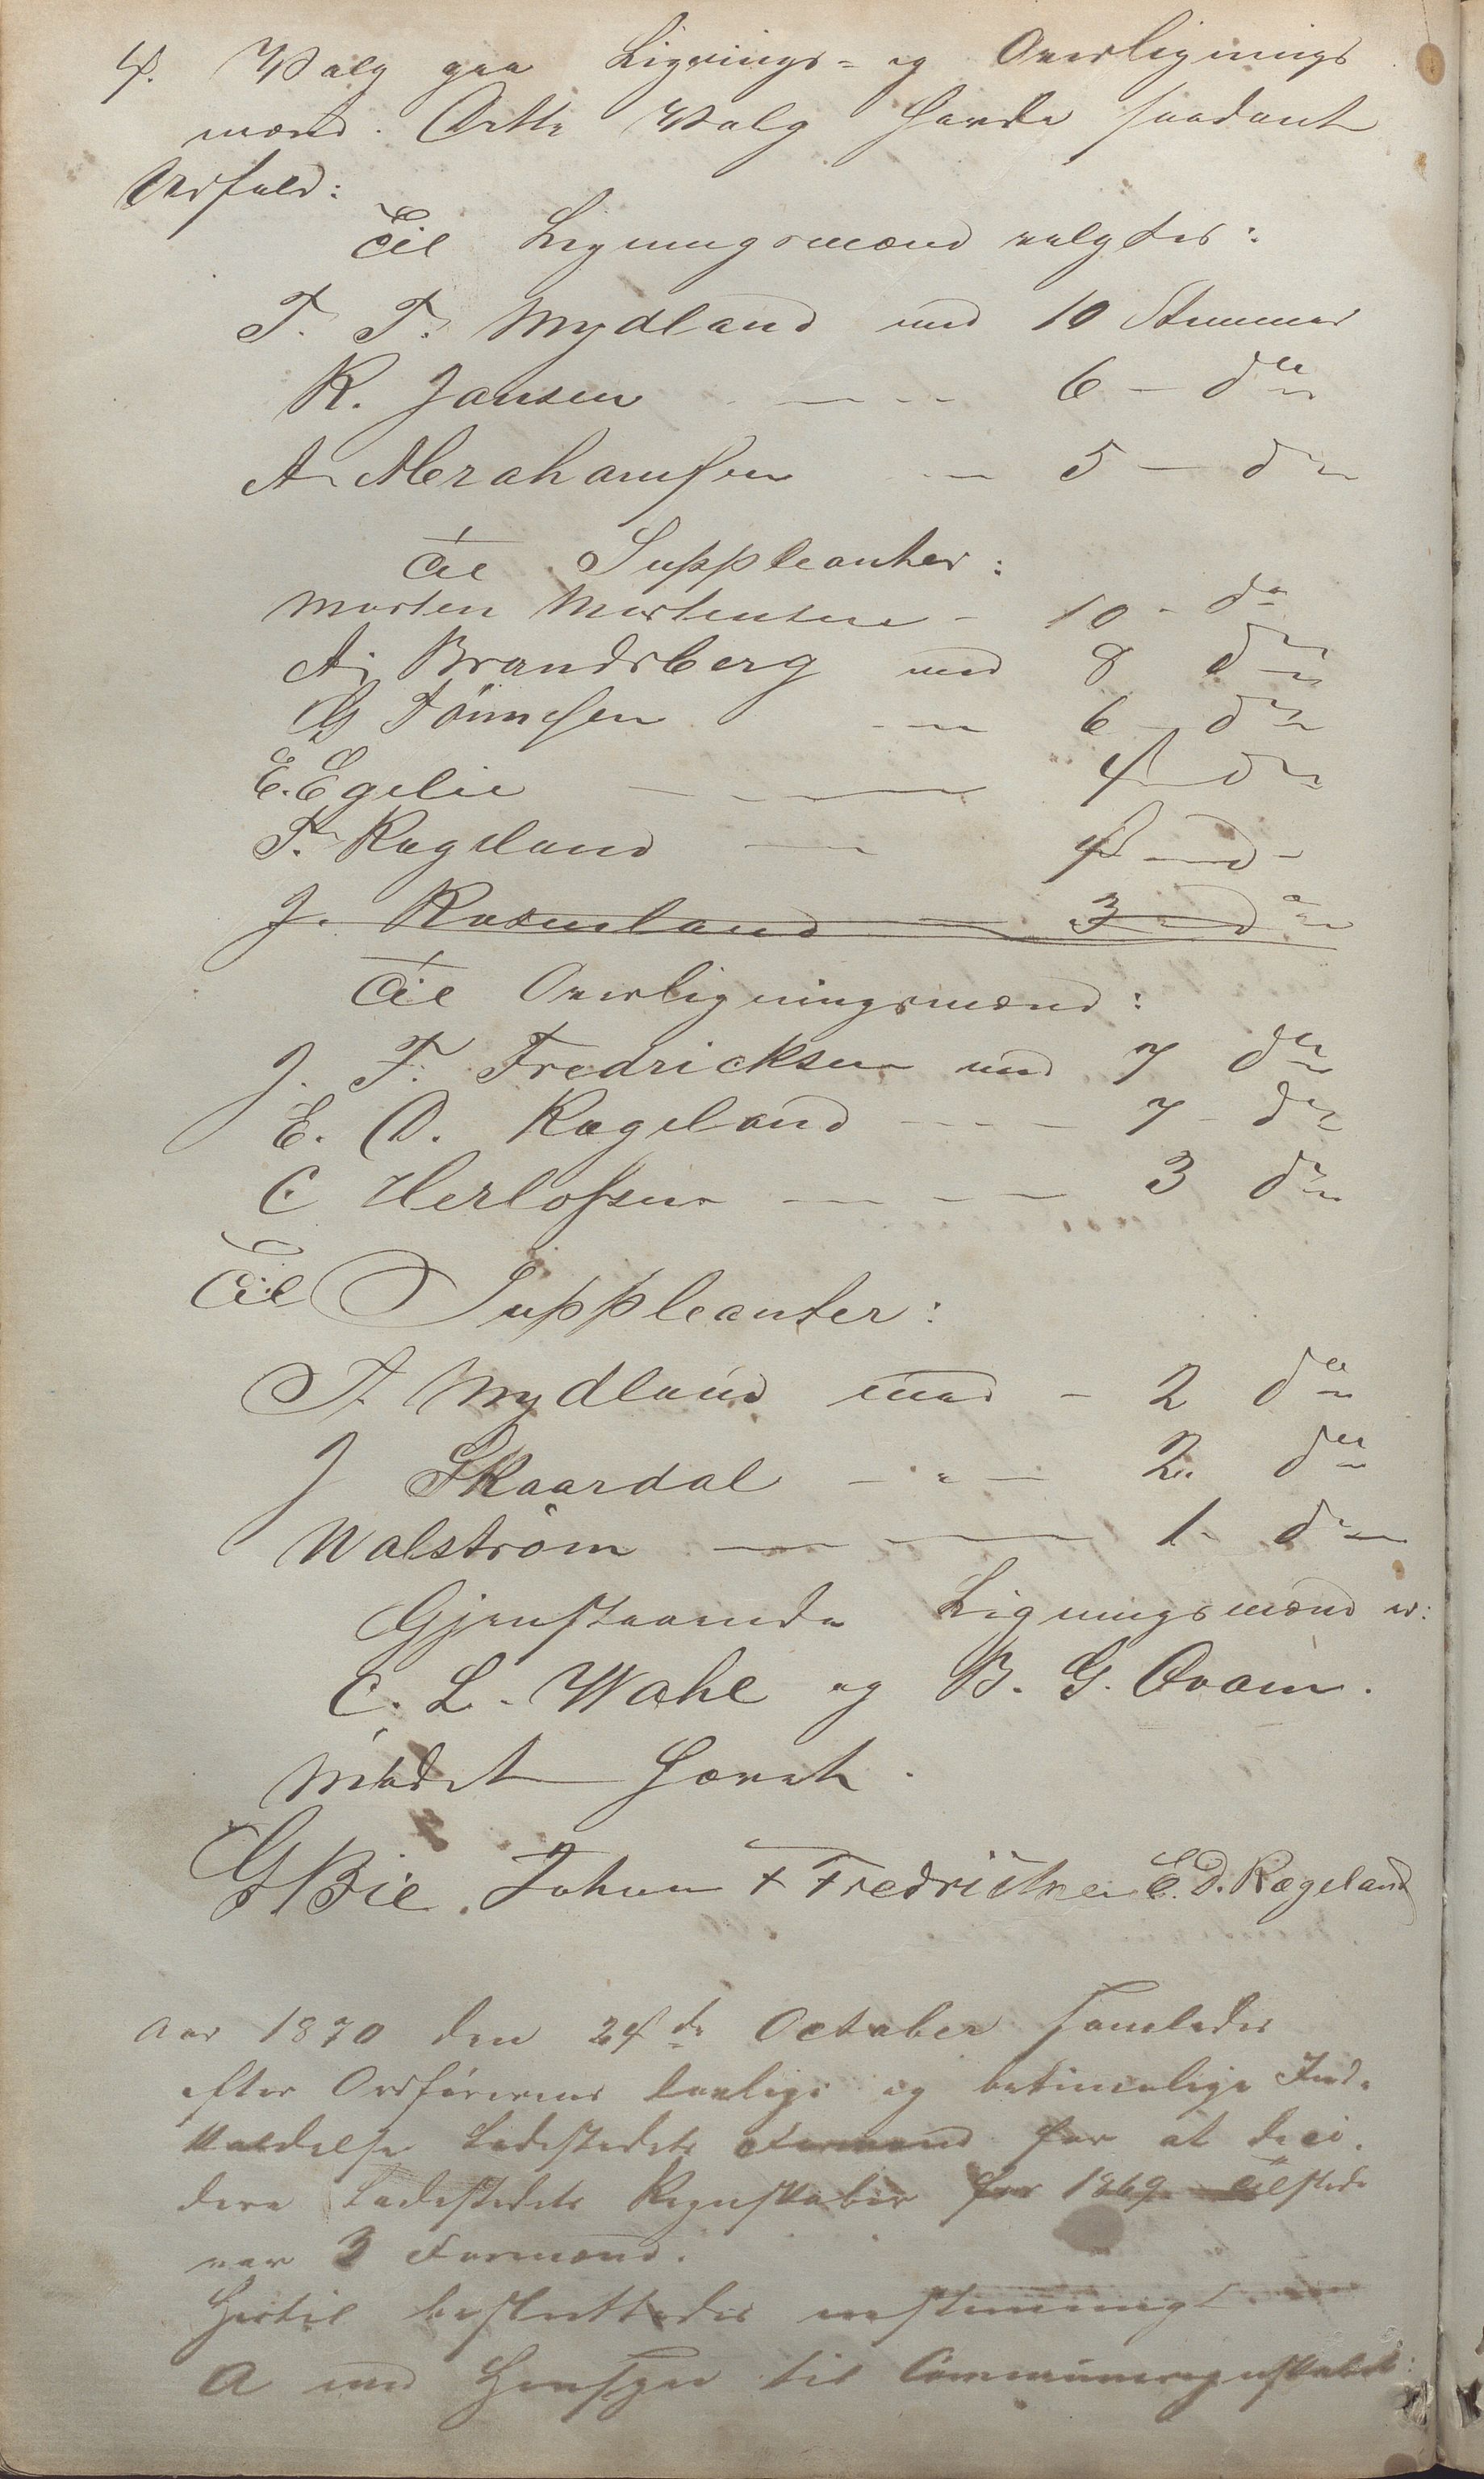 4. Valg paa Lignings- og Overlignings
mænd. Dette Valg havde saadant
Udfald:
Til Ligningsmænd valgtes:
T. T. Mydland med 10 Stemmer
K. Jansen — - - 6 — do
A. Abrahamsen - — 5 — do
Til Suppleanter:
Morten Mortensen - 10 - do
A. Brandsberg med 8 do
G Tønnesen - — 6 - do
E. Egelie — - — 4 do
T. Rageland — 4 — d -
J. Rosenland — 3 — do
Til Overligningsmænd:
J. F. Fredricksen med 7 do
E. D. Rageland - - - 7 - do
C Herlofsen — - - — 3 do
Til Suppleanter:
A Mydland med - 2 do
J Skaardal — " — 2 do
Walstrøm — — 1 - do
Gjenstaaende Ligningsmænd er:
C. L. Wahl og B. G. Qvam.
Mødet hævet.
G Bie. Johan F Fredriksen E. D. Rægeland
Aar 1870 den 24de October samledes
efter Ordførerens lovlige og betimelige Ind-
kaldelse Ladestedets Formænd for at deci-
dere Ladestedets Regnskaber for 1869. Tilstede
var 3 Formænd.
Hertil besluttedes enstemmigt
A med Hensyn til Communeregnskabet: